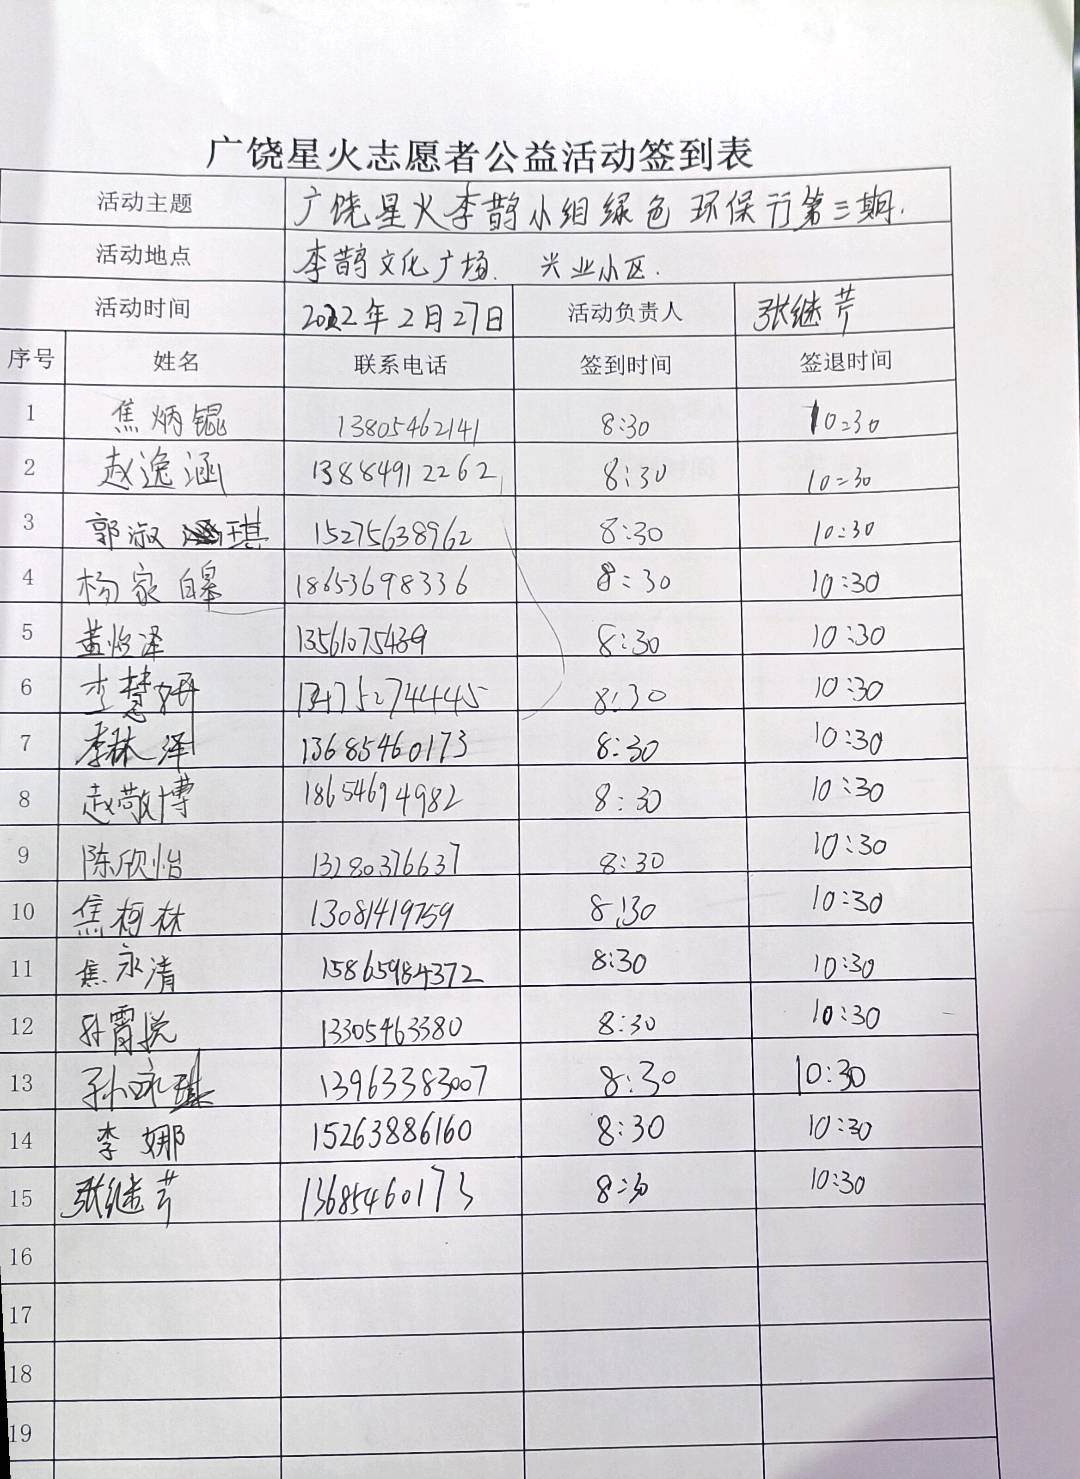 广饶星火志愿者公益活动签到表
活动主题 广饶星火李鹊小组绿色环保行第三期.
活动地点 李鹊文化广场. 兴业小区.
活动时间 2022年2月27日 活动负责人 张继芹
序号 姓名 联系电话 签到时间 签退时间
1 焦炳锟 13805462141 8:30 10:30
2 赵逸涵 13884912262 8:30 10:30
3 郭淑琪 15275638962 8:30 10:30
4 杨家皞 18653698336 8:30 10:30
5 黄怡泽 13561075439 8:30 10:30
6 李慧妍 13475274445 8:30 10:30
7 李林泽 13685460173 8:30 10:30
8 赵敬博 18654694982 8:30 10:30
9 陈欣怡 13280376637 8:30 10:30
10 焦柯林 13081419759 8:30 10:30
11 焦永清 15865984372 8:30 10:30
12 孙霄悦 13305463380 8:30 10:30
13 孙咏琪 13963383007 8:30 10:30
14 李娜 15263886160 8:30 10:30
15 张继芹 13685460173 8:30 10:30
16
17
18
19